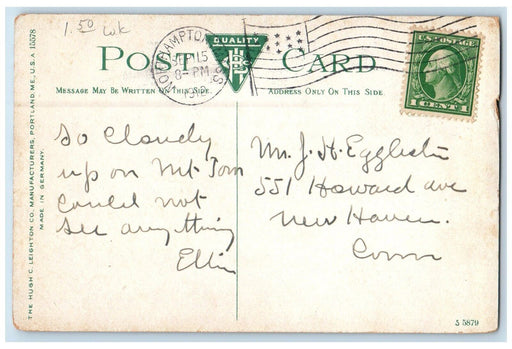 1.50 wk
POST CARD
QUALITY
NORTHAMPTON
15
8-PM
MESSAGE MAY BE WRITTEN ON THIS SIDE.
ADDRESS ONLY ON THIS SIDE.
U.S. POSTAGE
1 CENT 1
THE HUGH C. LEIGHTON CO. MANUFACTURERS, PORTLAND, ME., U.S.A 15578
MADE IN GERMANY.
So Cloudy
up on Mt. Tom
Could not
see anything
Mr. J. H. Eggleston
551 Howard ave
New Haven.
Conn
S 5879